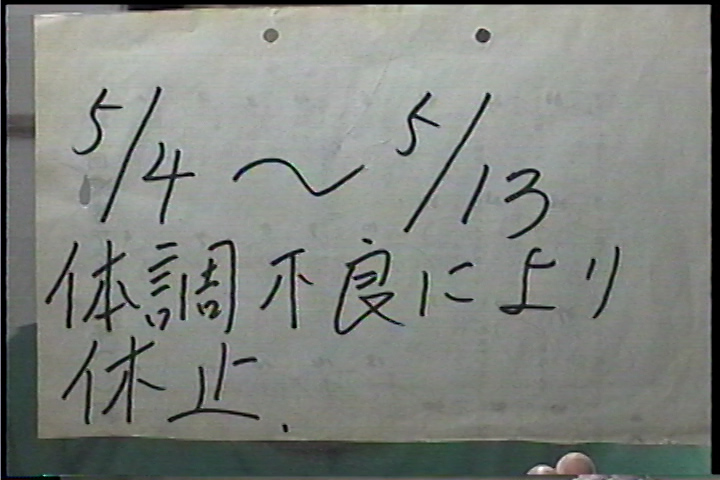 5/4〜5/13
体調不良により
休止.